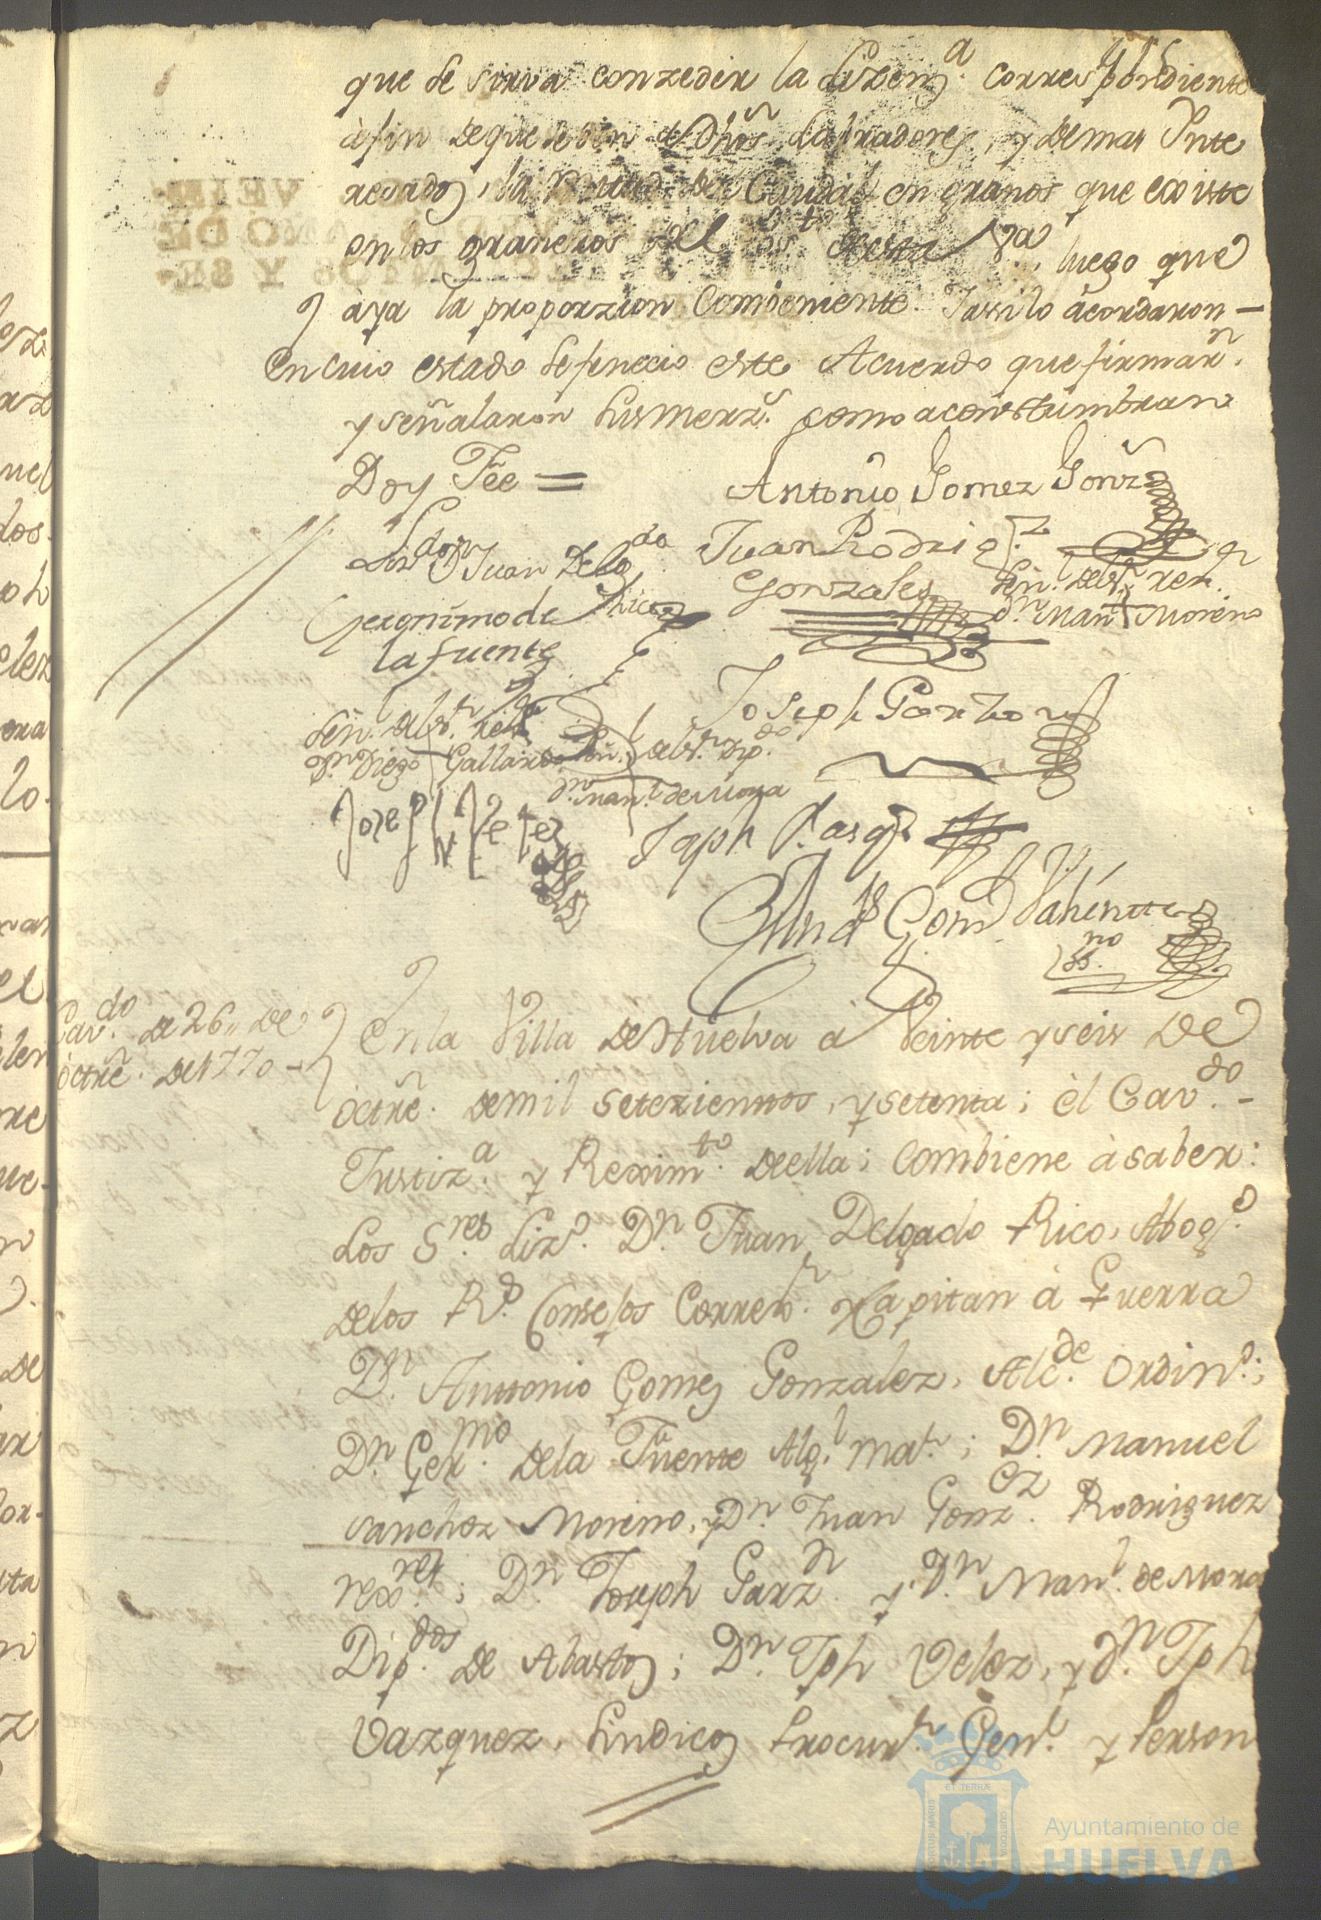 que se sirva conzeder la Lizenz.ª correspondiente
à fin de que se den à dhōs Labradores, y demas Inte
resados, la mitad del Caudal en granos que existe
en los graneros del Psto de esta V.ª, luego que
aya la proporzion combeniente. Y assi lo acordaron —
En cuio estado se feneccio este Acuerdo que firmar.n
y señalaron sus merz.s como acostumbran
Doy Feè =
Antonio Gomez Gonz
Lizdo Dn Juan Delg.do
Rico
Juan Rodrig.z
Gonzales
Señ. del Sr. rex.r
Dn Man.l Moreno
Geronimo de
la fuente
Joseph Garzon
Señ. del Sr. rex.r
Dn Diego Gallardo
Señ. del Sr. Dip.do
Dn Man.l de Mora
Josef Velez
Joseph Vasqz
Gom.z Valiente
ssno
Cav.do de 26,, de
octrē. de 1770 —
En la Villa de Huelva à Veinte y seis de
octrē. de mil setezientos, y setenta; èl Cav.do —
Justiz.a y Rexim.to de ella; combiene à saber:
Los S.res Liz.do D.n Juan Delgado Rico, Abog.do
de los R.s Consejos Correx.r y Capitan à Guerra
D.n Antonio Gomez Gonzalez, Alc.de Ordin.o;
D.n Ger.mo de la Fuente Alg.l mai.r; D.n Manuel
Sanchez Moreno, y D.n Juan Gonz.ez Rodriguez
rex.res; D.n Joseph Garz.n y D.n Man.l de Mora
Dip.dos de Abastos; D.n Jph Velez, y D.n Jph
Vazquez, Sindicos Procur.r Gen.l y Person
ET TERRÆ
PORTUS MARIS
CUSTODIA
Ayuntamiento de
HUELVA